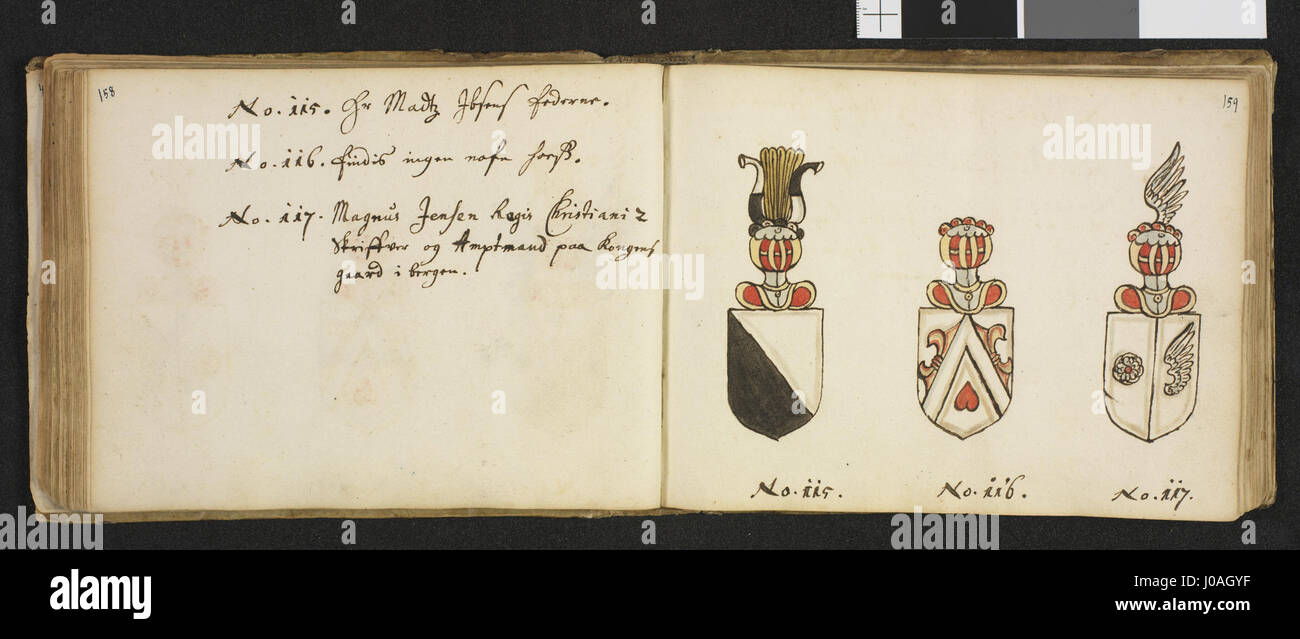 158
No. 115. Hr Madtz Ibsens federne.
No. 116. findis ingen nafn hoess.
No. 117. Magnus Jensen Regis Christiani 2
Skriffver og Amptmand paa Kongens
gaard i bergen.
159
No. 115.
No. 116.
No. 117.
alamy
Image ID: J0AGYF
www.alamy.com